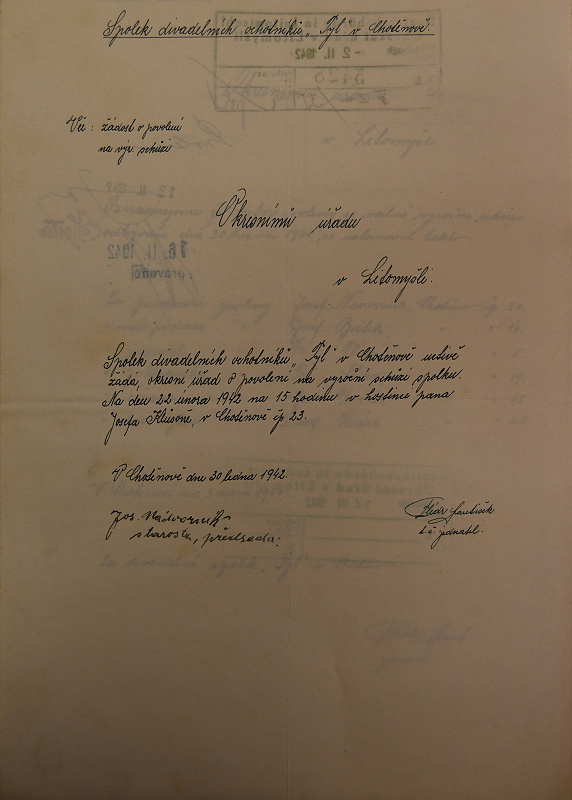 Spolek divadelních ochotníků „Tyl" v Chotěnově.
Věc: žádost o povolení
na výr. schůzi
Okresnímu úřadu
v Litomyšli.
Spolek divadelních ochotníků „Tyl" v Chotěnově uctivě
žádá, okresní úřad o povolení na vyroční schůzi spolku.
Na den 22 února 1942 na 15 hodinu v hostinci pana
Josefa Klusoně, v Chotěnově čp 23.
V Chotěnově dne 30 ledna 1942.
Jos. Nádvorník
starosta, předseda.
t. č. jednatel.